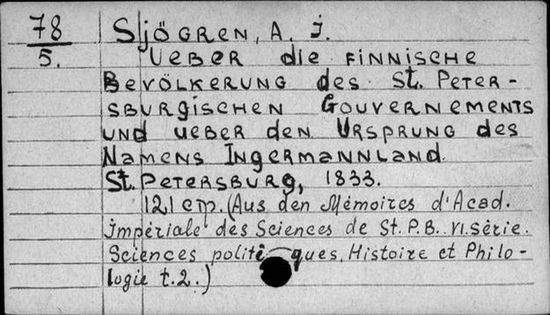 78
5.
Sjögren, A. J.
Ueber die finnische
Bevölkerung des St. Peter-
sburgischen Gouvernements
und ueber den Ursprung des
Namens Ingermannland.
St. Petersburg, 1833.
121 стр. (Aus den Mémoires d'Acad.
Jmpériale des Sciences de St. P.B. VI. série.
Sciences politiques, Histoire et Philo-
logie t.2.)